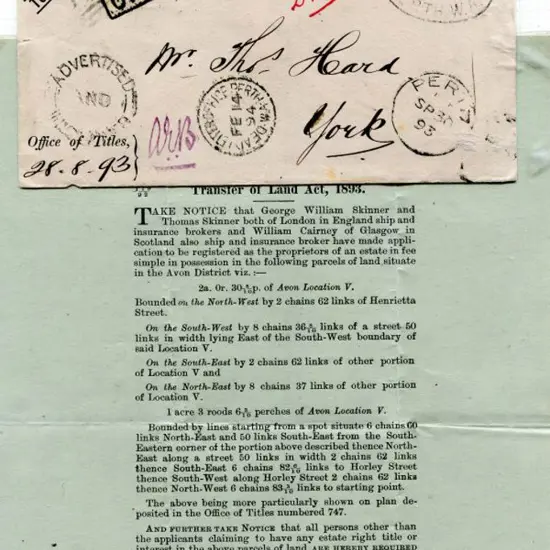 Mr. Thos. Hard
York
ADVERTISED
AND
DEAD LETTER OFFICE PERTH W.A.
FE 14
94
PERTH
SP 30
93
Office of Titles,
28.8.93
Transfer of Land Act, 1893.
TAKE NOTICE that George William Skinner and
Thomas Skinner both of London in England ship and
insurance brokers and William Cairney of Glasgow in
Scotland also ship and insurance broker have made appli-
cation to be registered as the proprietors of an estate in fee
simple in possession in the following parcels of land situate
in the Avon District viz. :—
2a. 0r. 30 5/10p. of Avon Location V.
Bounded on the North-West by 2 chains 62 links of Henrietta
Street.
On the South-West by 8 chains 36 links of a street 50
links in width lying East of the South-West boundary of
said Location V.
On the South-East by 2 chains 62 links of other portion
of Location V and
On the North-East by 8 chains 37 links of other portion
of Location V.
1 acre 3 roods 6 perches of Avon Location V.
Bounded by lines starting from a spot situate 6 chains 60
links North-East and 50 links South-East from the South-
Eastern corner of the portion above described thence North-
East along a street 50 links in width 2 chains 62 links
thence South-East 6 chains 82 links to Horley Street
thence South-West along Horley Street 2 chains 62 links
thence North-West 6 chains 83 links to starting point.
The above being more particularly shown on plan de-
posited in the Office of Titles numbered 747.
AND FURTHER TAKE NOTICE that all persons other than
the applicants claiming to have any estate right title or
interest in the above parcels of land ARE HEREBY REQUIRED